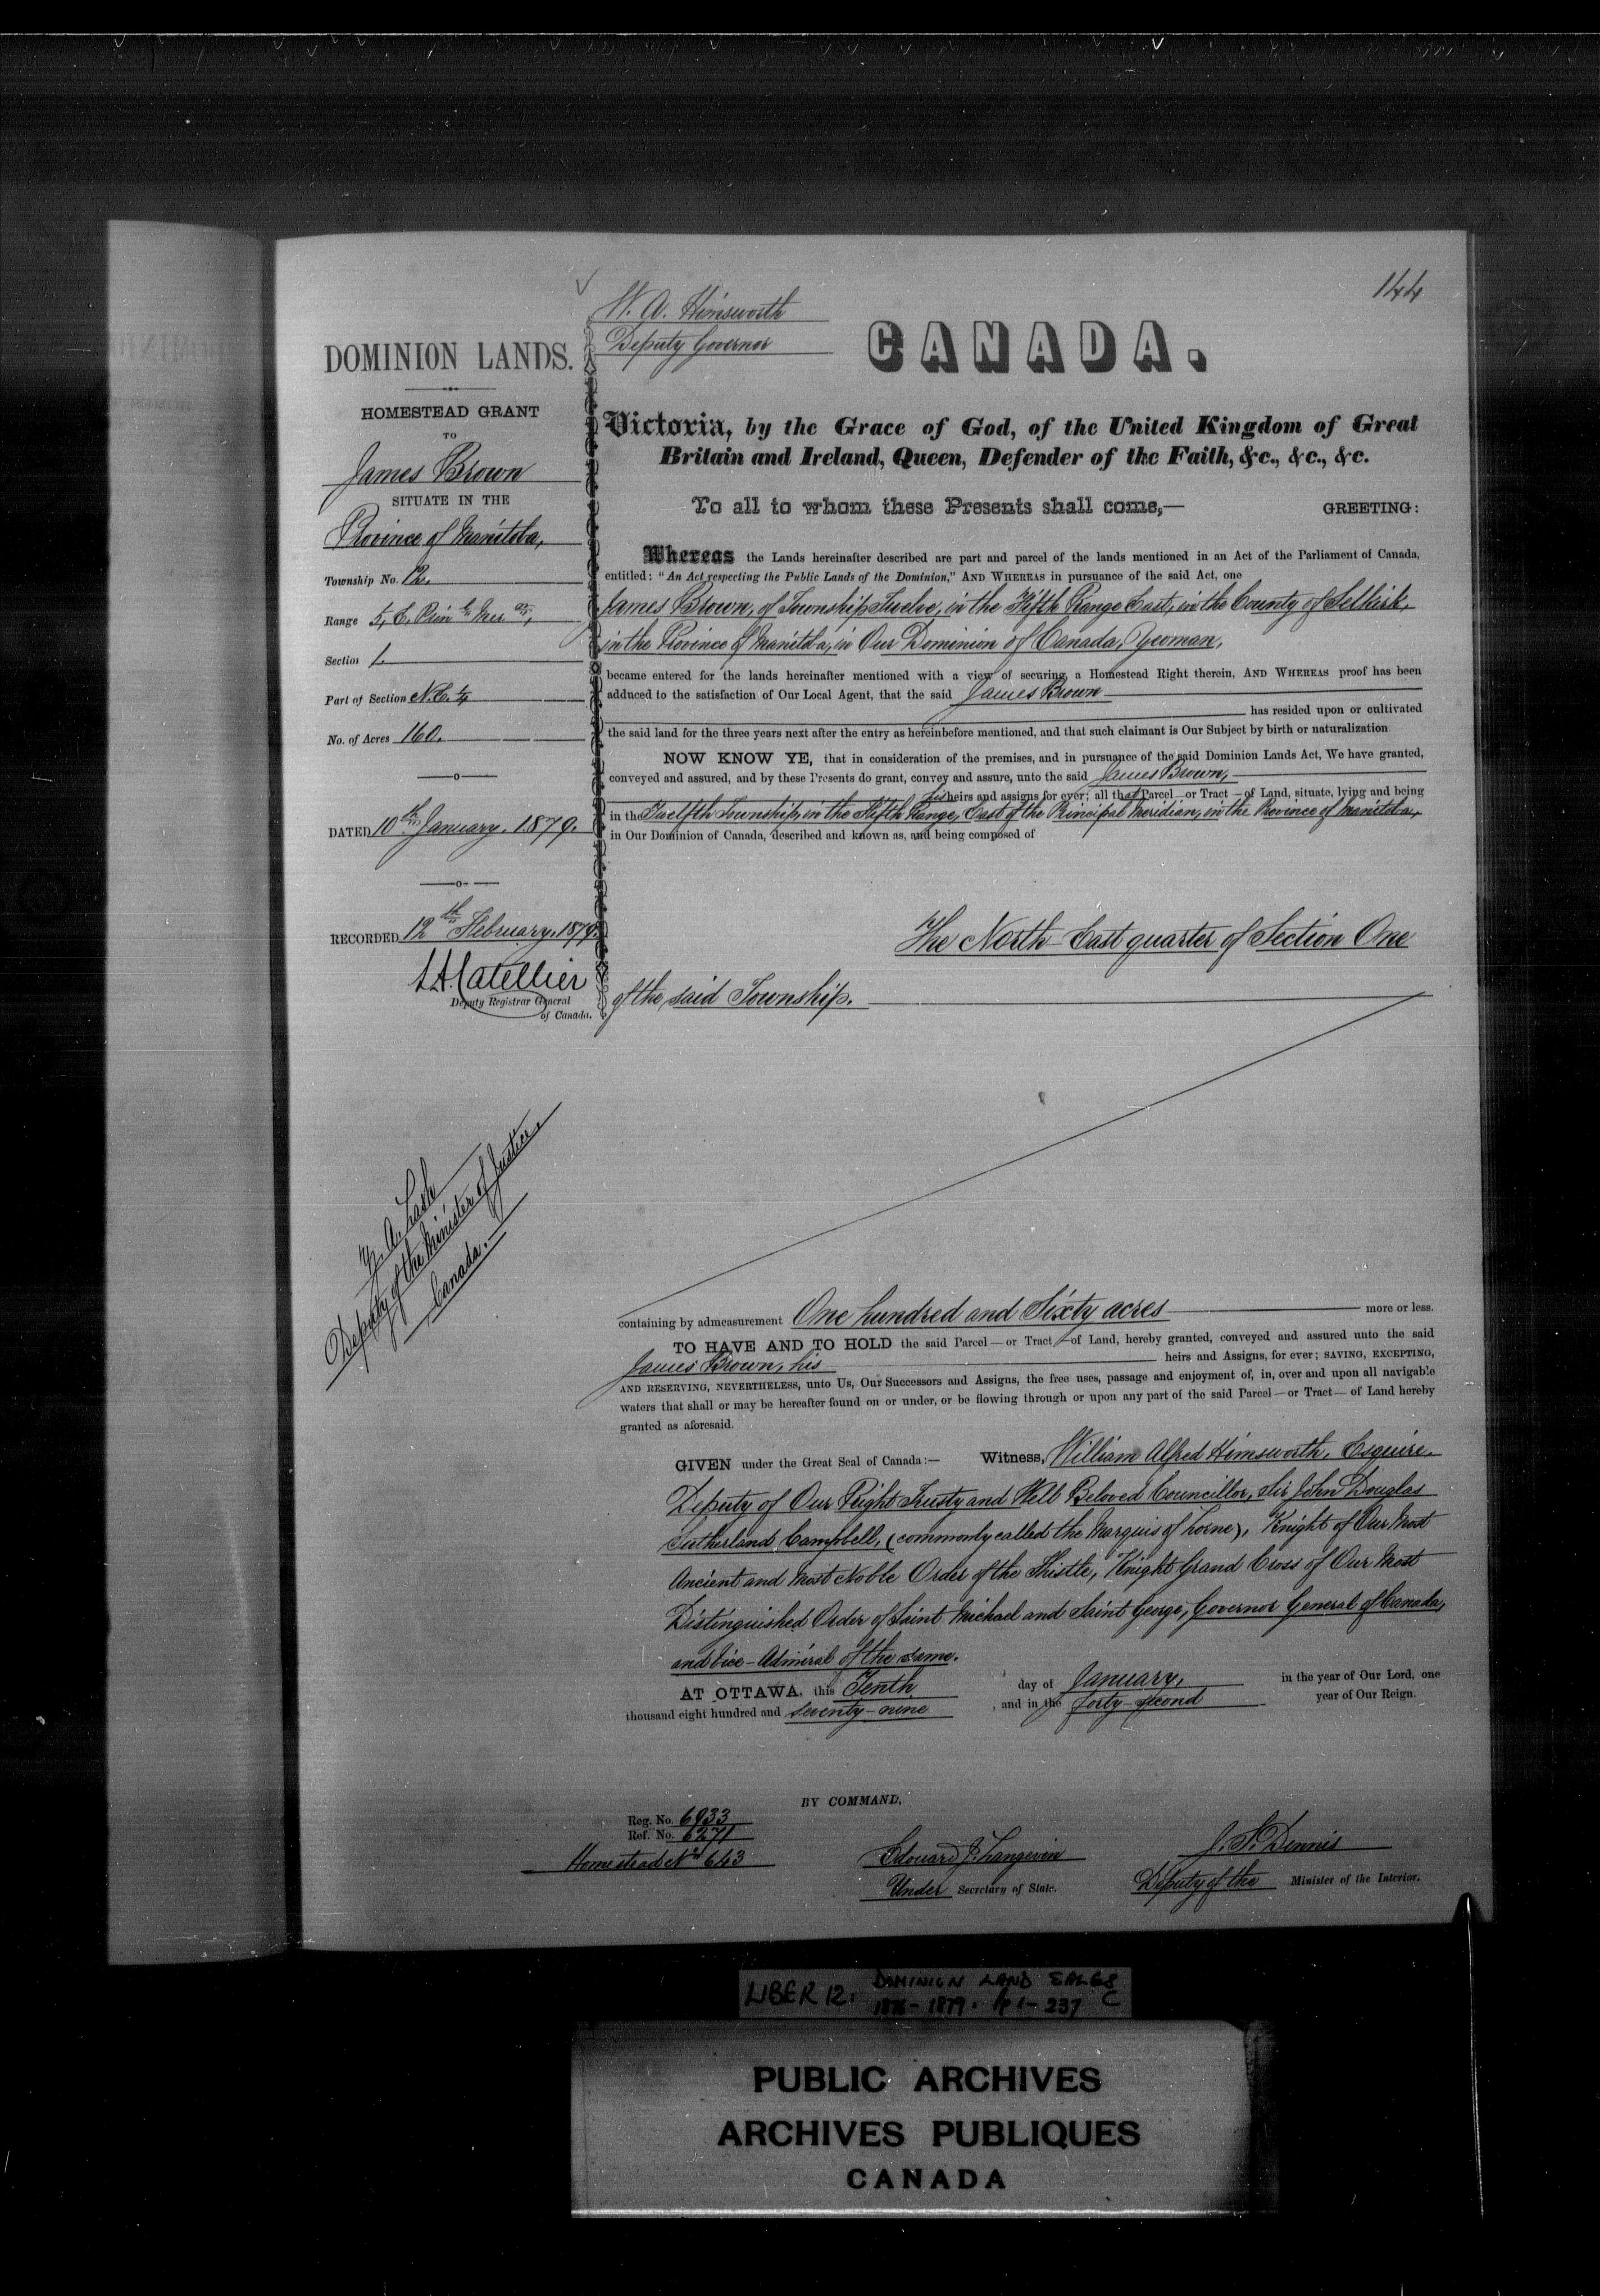 144
W. A. Himsworth
Deputy Governor
CANADA.
DOMINION LANDS.
HOMESTEAD GRANT
TO
James Brown
SITUATE IN THE
Province of Manitoba,
Township No. 12.
Range 5, E. Prin l Mer an,
Section 1.
Part of Section N.E. ¼
No. of Acres 160.
DATED 10th January, 1879.
RECORDED 12th February, 1879.
L.A. Catellier
Deputy Registrar General
of Canada.
Z. A. Lash
Deputy of the Minister of Justice,
Canada.
Victoria, by the Grace of God, of the United Kingdom of Great
Britain and Ireland, Queen, Defender of the Faith, &c., &c., &c.
To all to whom these Presents shall come,— GREETING:
Whereas the Lands hereinafter described are part and parcel of the lands mentioned in an Act of the Parliament of Canada,
entitled: "An Act respecting the Public Lands of the Dominion," AND WHEREAS in pursuance of the said Act, one
James Brown, of Township Twelve, in the Fifth Range East, in the County of Selkirk,
in the Province of Manitoba, in Our Dominion of Canada, Yeoman,
became entered for the lands hereinafter mentioned with a view of securing a Homestead Right therein, AND WHEREAS proof has been
adduced to the satisfaction of Our Local Agent, that the said James Brown
has resided upon or cultivated
the said land for the three years next after the entry as hereinbefore mentioned, and that such claimant is Our Subject by birth or naturalization
NOW KNOW YE, that in consideration of the premises, and in pursuance of the said Dominion Lands Act, We have granted,
conveyed and assured, and by these Presents do grant, convey and assure, unto the said James Brown,
his heirs and assigns for ever; all that Parcel—or Tract—of Land, situate, lying and being
in the Twelfth Township, in the Fifth Range, East of the Principal Meridian, in the Province of Manitoba,
in Our Dominion of Canada, described and known as, and being composed of
The North East quarter of Section One
of the said Township.
containing by admeasurement One hundred and Sixty acres more or less.
TO HAVE AND TO HOLD the said Parcel—or Tract—of Land, hereby granted, conveyed and assured unto the said
James Brown, his heirs and Assigns, for ever; SAVING, EXCEPTING,
AND RESERVING, NEVERTHELESS, unto Us, Our Successors and Assigns, the free uses, passage and enjoyment of, in, over and upon all navigable
waters that shall or may be hereafter found on or under, or be flowing through or upon any part of the said Parcel—or Tract—of Land hereby
granted as aforesaid.
GIVEN under the Great Seal of Canada:— Witness, William Alfred Himsworth, Esquire,
Deputy of Our Right Trusty and Well Beloved Councillor, Sir John Douglas
Sutherland Campbell, (commonly called the Marquis of Lorne), Knight of Our Most
Ancient and Most Noble Order of the Thistle, Knight Grand Cross of Our Most
Distinguished Order of Saint Michael and Saint George, Governor General of Canada,
and Vice-Admiral of the same.
AT OTTAWA, this Tenth day of January, in the year of Our Lord, one
thousand eight hundred and seventy-nine, and in the forty-second year of Our Reign.
BY COMMAND,
Reg. No. 6933
Ref. No. 6271
Homestead No. 643
Edouard J. Langevin
Under Secretary of State.
J. S. Dennis
Deputy of the Minister of the Interior.
LIBER 12: DOMINION LAND SALES
1878-1879. pp 1-237 C
PUBLIC ARCHIVES
ARCHIVES PUBLIQUES
CANADA